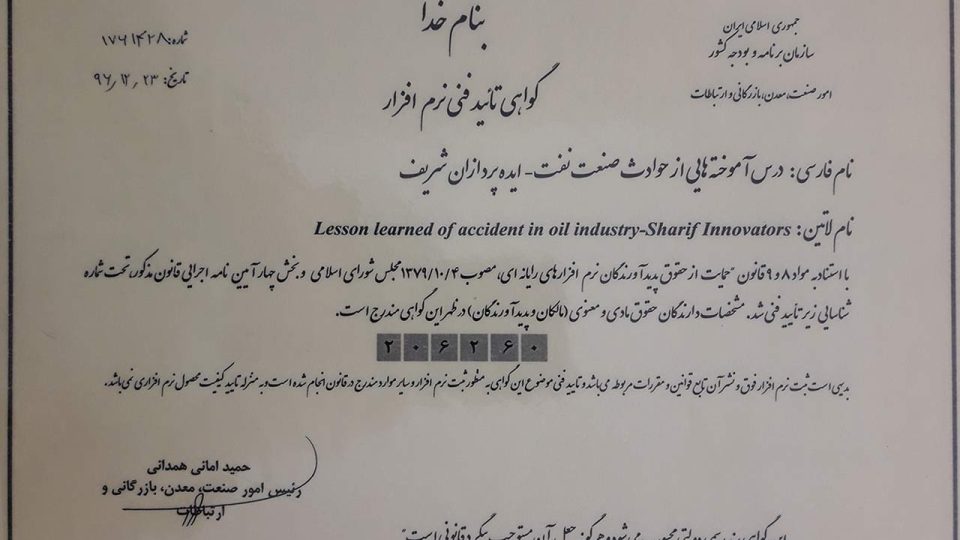 بنام خدا
جمهوری اسلامی ایران
سازمان برنامه و بودجه کشور
امور صنعت، معدن، بازرگانی و ارتباطات
شماره: ۱۷۶۱۴۲۸
تاریخ: ۹۶/۱۲/۲۳
گواهی تائید فنی نرم افزار
نام فارسی: درس آموخته هایی از حوادث صنعت نفت - ایده پردازان شریف
نام لاتین: Lesson learned of accident in oil industry-Sharif Innovators
با استناد به مواد ۸ و ۹ قانون "حمایت از حقوق پدیدآورندگان نرم افزارهای رایانه ای، مصوب ۱۳۷۹/۱۰/۴ مجلس شورای اسلامی و بخش چهار آیین نامه اجرایی قانون مذکور، تحت شماره
شناسایی زیر تأیید فنی شد. مشخصات دارندگان حقوق مادی و معنوی (مالکان و پدیدآورندگان) در ظهر این گواهی مندرج است.
۲۰۶۲۶۰
بدیهی است ثبت نرم افزار فوق و نشر آن تابع قوانین و مقررات مربوطه می باشد و تایید فنی موضوع این گواهی به منظور ثبت نرم افزار و سایر موارد مندرج در قانون انجام شده است و به منزله تایید کیفیت محصول نرم افزاری نمی باشد.
حمید امانی همدانی
رئیس امور صنعت، معدن، بازرگانی و
ارتباطات
این گواهی سند رسمی دولتی محسوب می شود و هرگونه جعل آن مستوجب پیگرد قانونی است